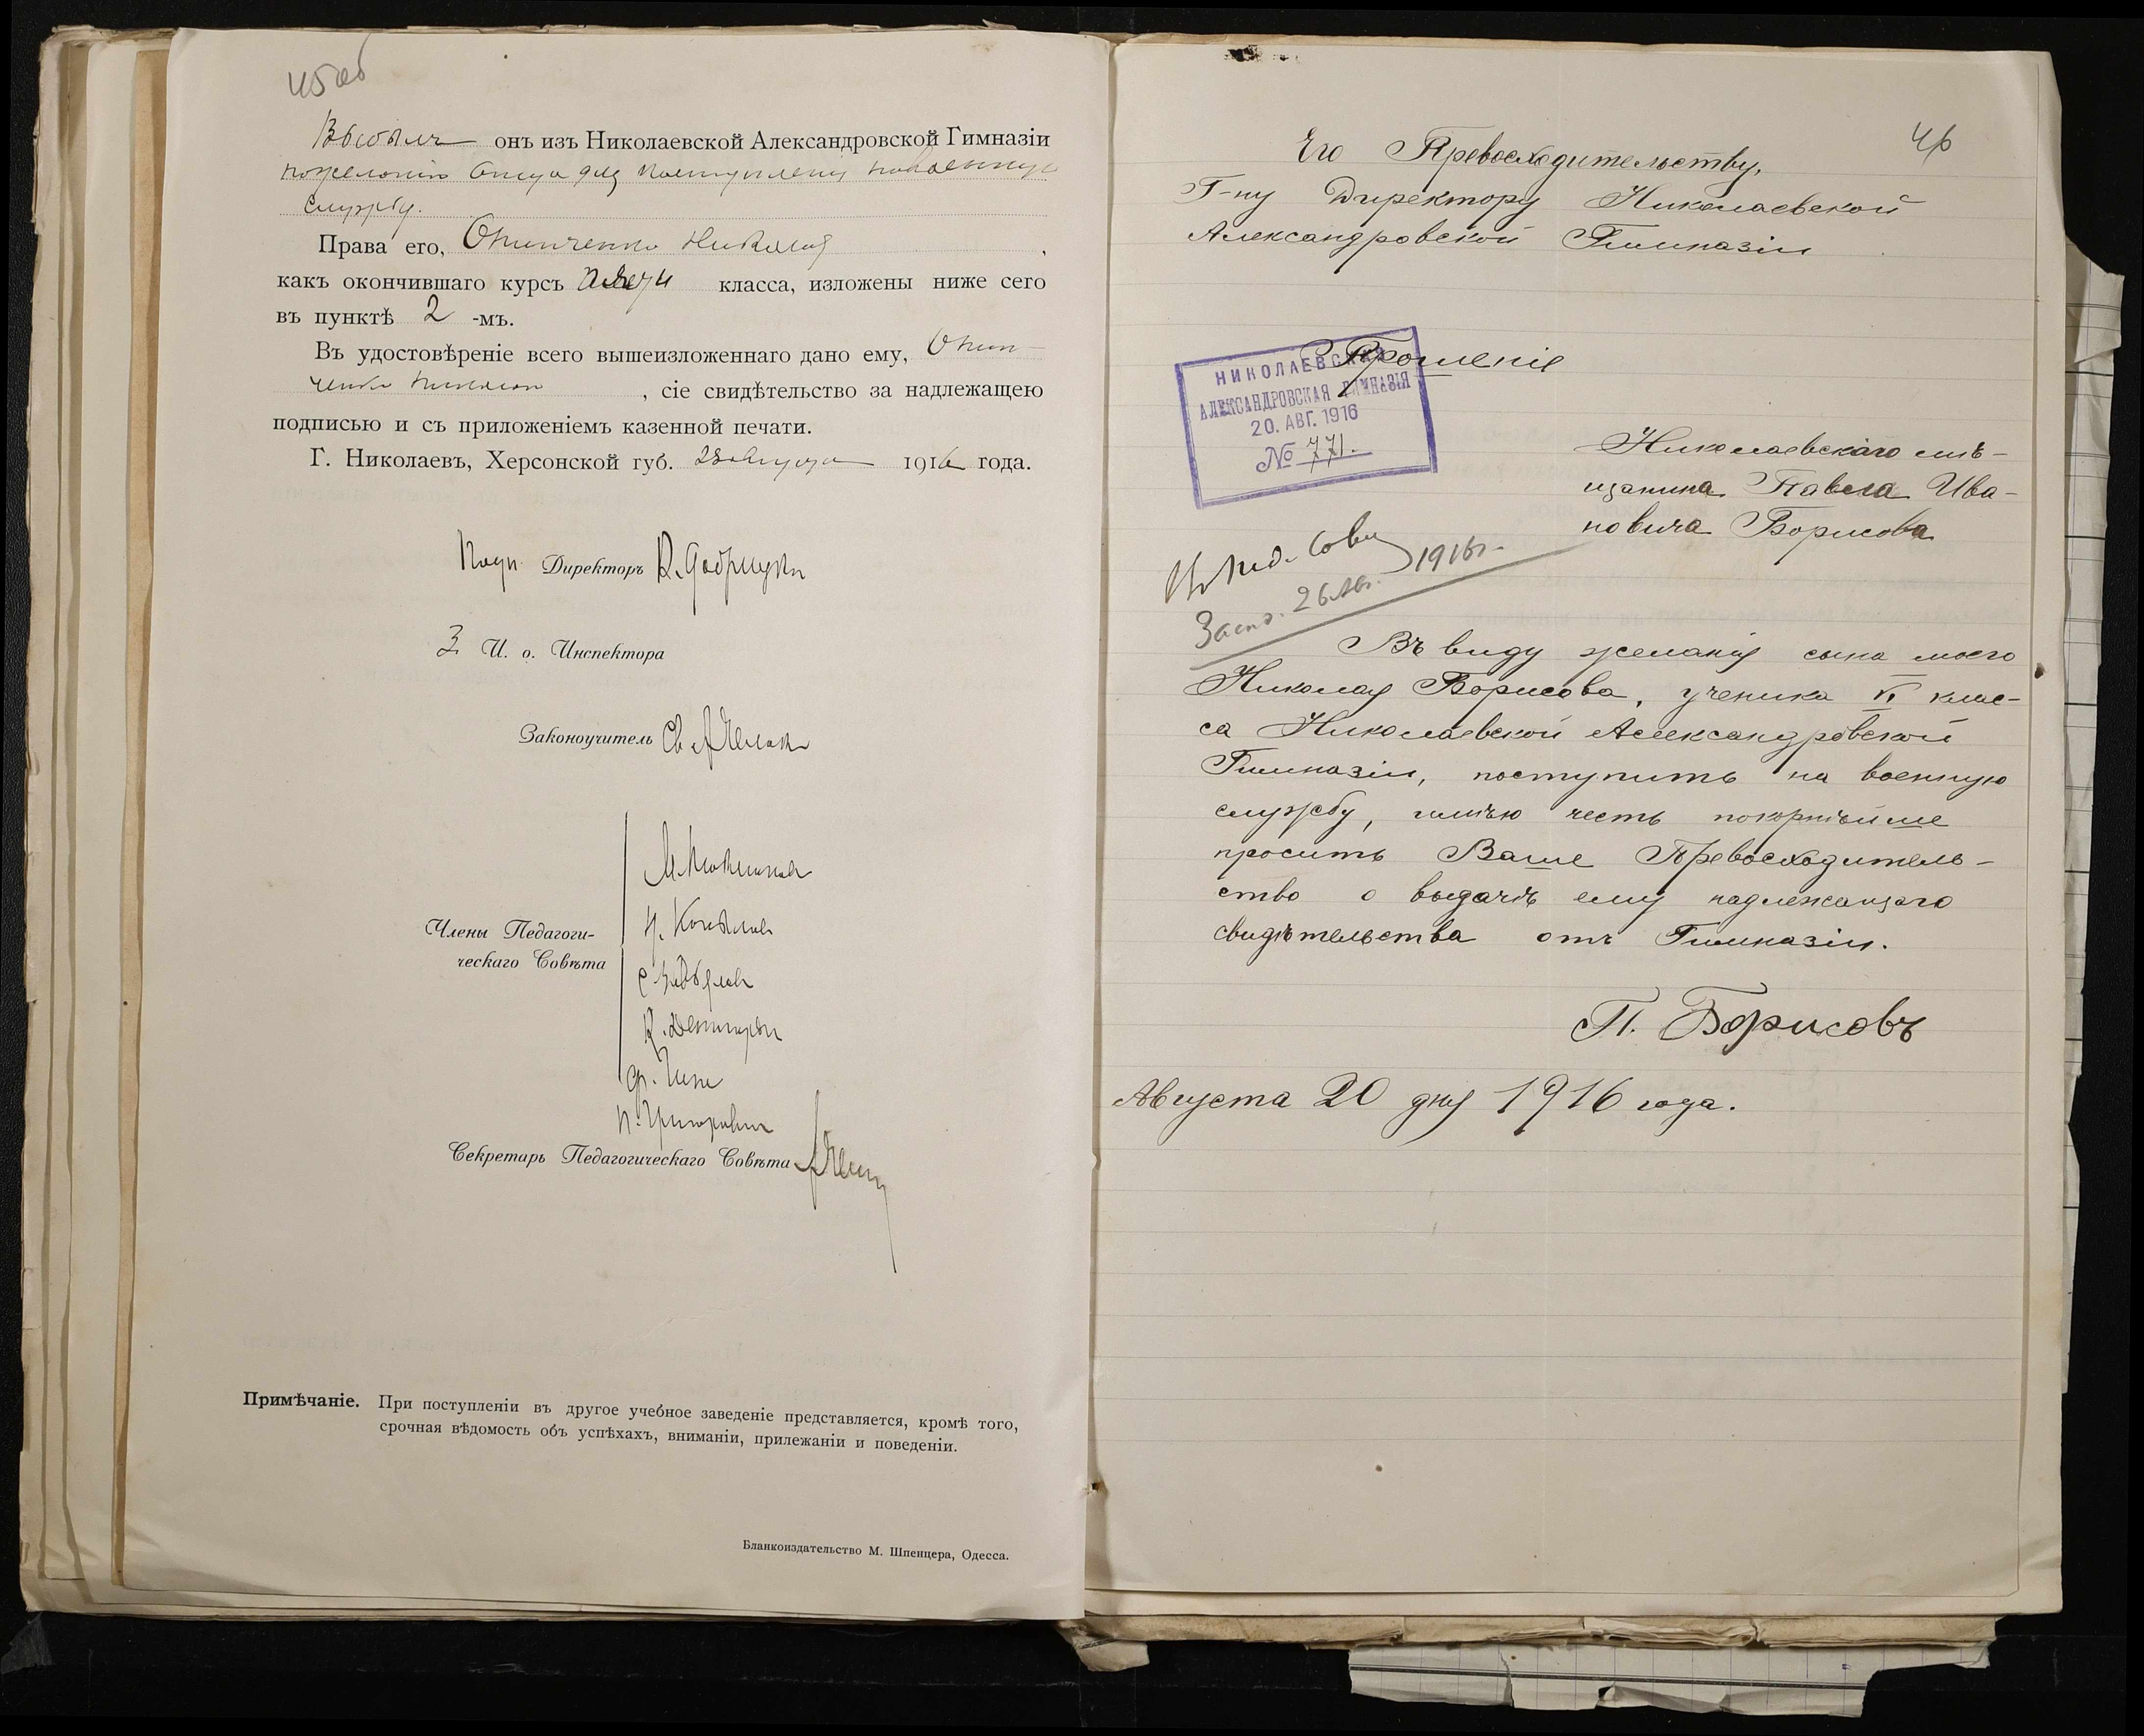 45об
Выбылъ онъ изъ Николаевской Александровской Гимназіи
по желанію отца для поступленія на военную
службу.
Права его, Онипченко Николая,
какъ окончившаго курсъ класса, изложены ниже сего
въ пунктѣ 2 -мъ.
Въ удостовѣреніе всего вышеизложеннаго дано ему, Онип-
ченко Николаю, сіе свидѣтельство за надлежащею
подписью и съ приложеніемъ казенной печати.
Г. Николаевъ, Херсонской губ. 28 августа 1916 года.
Директоръ
З. И. о. Инспектора
Законоучитель Св.
Члены Педагоги-
ческаго Совѣта
Секретарь Педагогическаго Совѣта
Примѣчаніе. При поступленіи въ другое учебное заведеніе представляется, кромѣ того,
срочная вѣдомость объ успѣхахъ, вниманіи, прилежаніи и поведеніи.
Бланкоиздательство М. Шпенцера, Одесса.
46
Его Превосходительству,
Г-ну Директору Николаевской
Александровской Гимназіи
Прошеніе
НИКОЛАЕВСКАЯ
АЛЕКСАНДРОВСКАЯ ГИМНАЗІЯ
20. АВГ. 1916
№ 771.
Николаевскаго мѣ-
щанина Павла Ива-
новича Борисова
Въ Пед. Сов. 1916 г.
26 Ав.
Въ виду желанія сына моего
Николая Борисова, ученика VI клас-
са Николаевской Александровской
Гимназіи, поступить на военную
службу, имѣю честь покорнѣйше
просить Ваше Превосходитель-
ство о выдачѣ ему надлежащаго
свидѣтельства отъ Гимназіи.
П. Борисовъ
Августа 20 дня 1916 года.